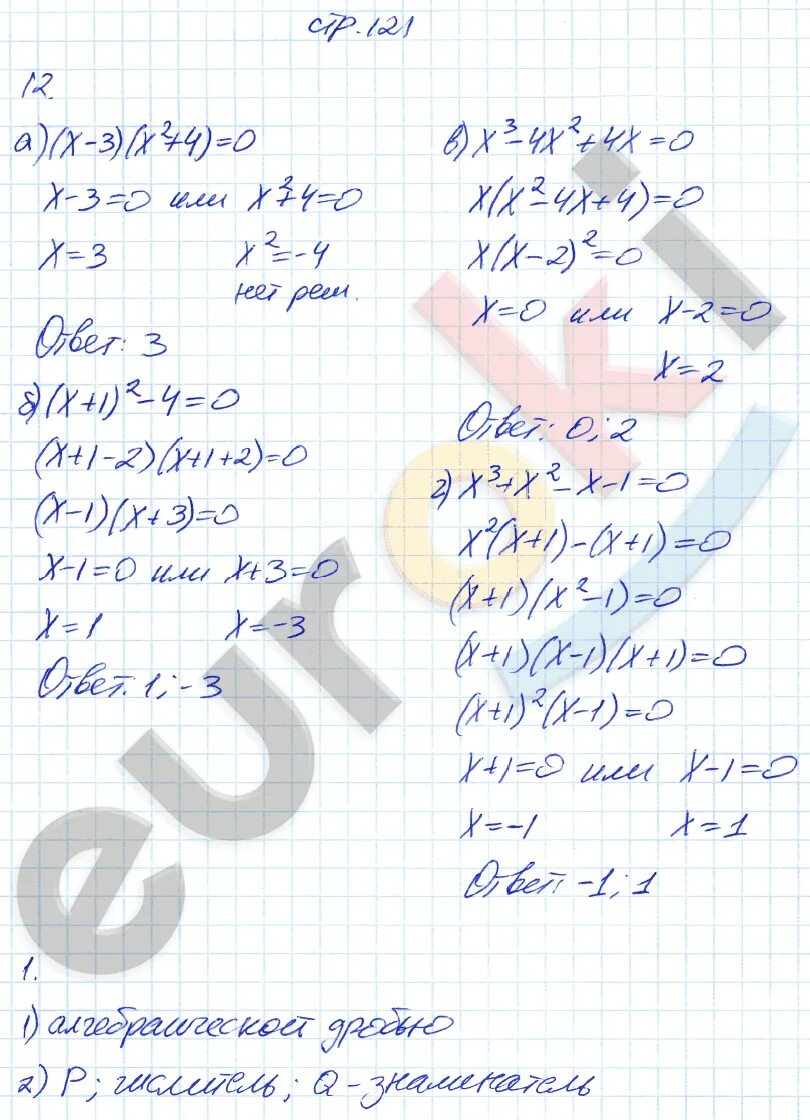 стр. 121
12.
а) (x-3)(x²+4)=0
x-3=0 или x²+4=0
x=3 x²=-4
нет реш.
Ответ: 3
б) (x+1)²-4=0
(x+1-2)(x+1+2)=0
(x-1)(x+3)=0
x-1=0 или x+3=0
x=1 x=-3
Ответ. 1; -3
в) x³-4x²+4x=0
x(x²-4x+4)=0
x(x-2)²=0
x=0 или x-2=0
x=2
Ответ: 0; 2
г) x³+x²-x-1=0
x²(x+1)-(x+1)=0
(x+1)(x²-1)=0
(x+1)(x-1)(x+1)=0
(x+1)²(x-1)=0
x+1=0 или x-1=0
x=-1 x=1
Ответ: -1; 1
1.
1) алгебраической дробью
2) P; числитель; Q - знаменатель
euroki